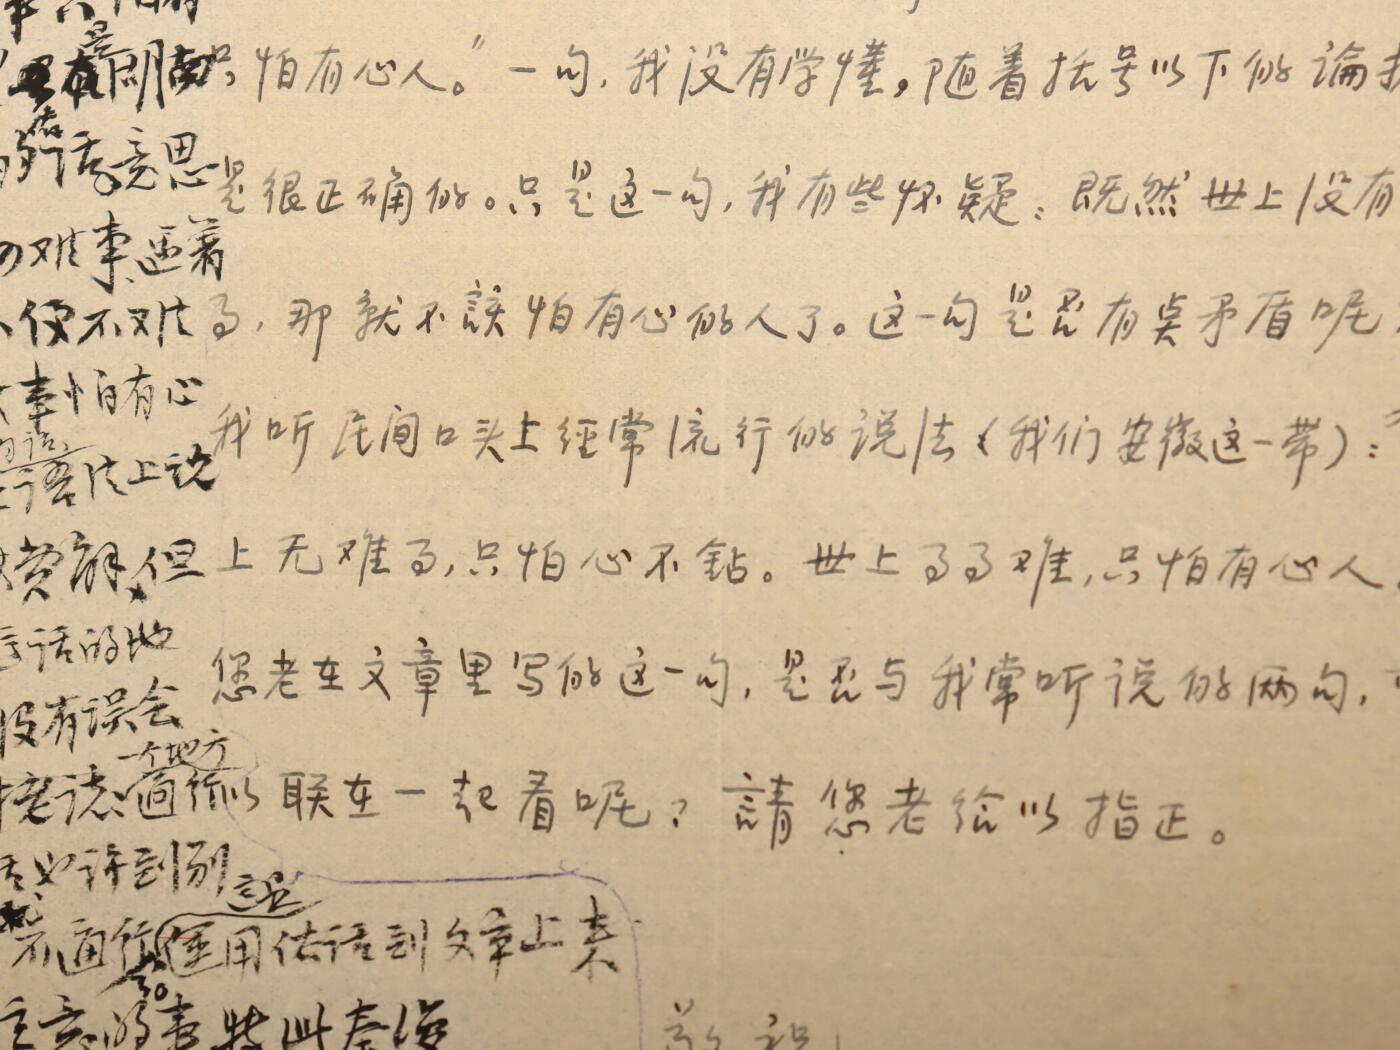 只怕有心人。”一句，我没有学懂。随着括号以下的論
是很正确的。只是这一句，我有些怀疑：既然世上没有
事，那就不該怕有心的人了。这一句是否有点矛盾呢
我听民间口头上经常流行的说法（我们安徽这一带）：“
上无难事，只怕心不钻。世上事事难，只怕有心人。
您老在文章里写的这一句，是否与我常听说的两句，可
以联在一起看呢？請您老给以指正。
敬祝
的话意思
难事遇着
便不难
事怕有心
语法上说
费解，但
话的地
没有误会
一个地方
通行
话也许到别
不通行
运用俗话到文章上来
注意的事特此奉复